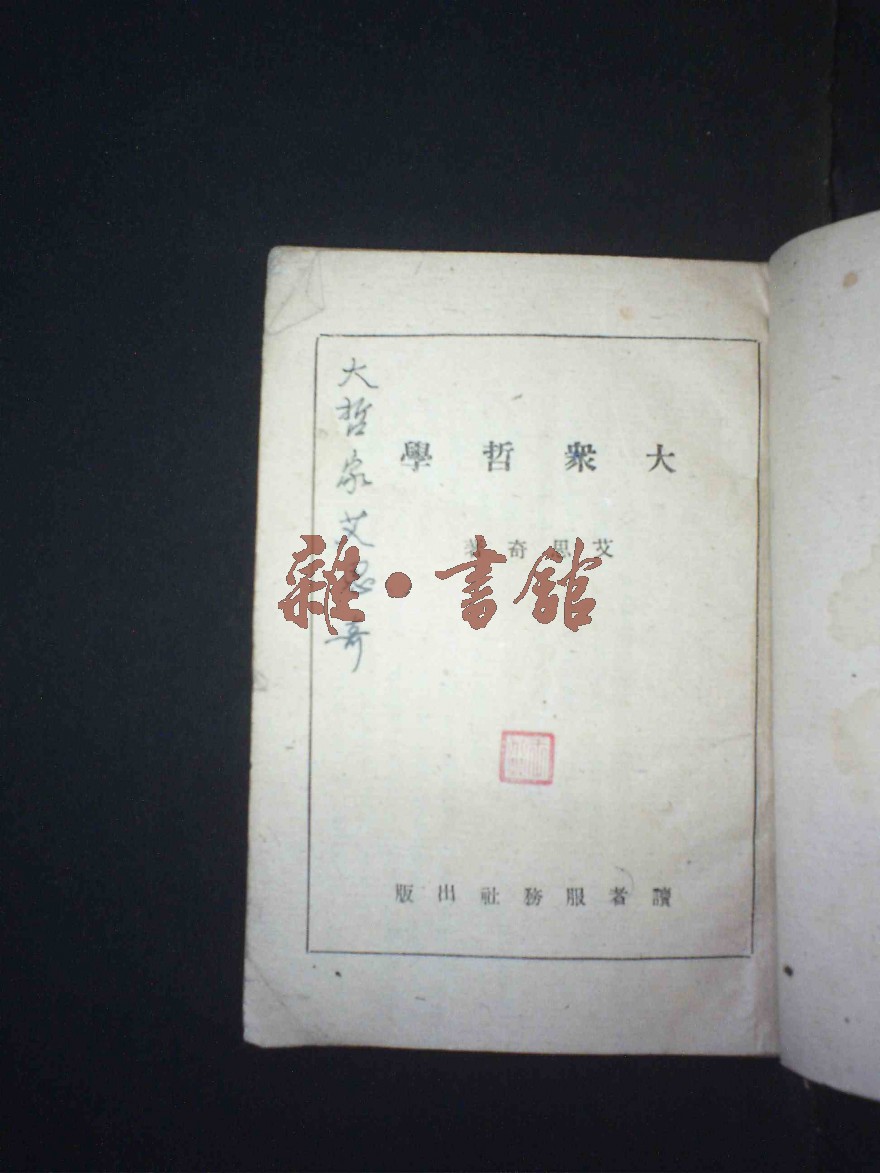 大衆哲學
艾思奇著
讀者服務社出版
大哲家艾思奇
雜·書館